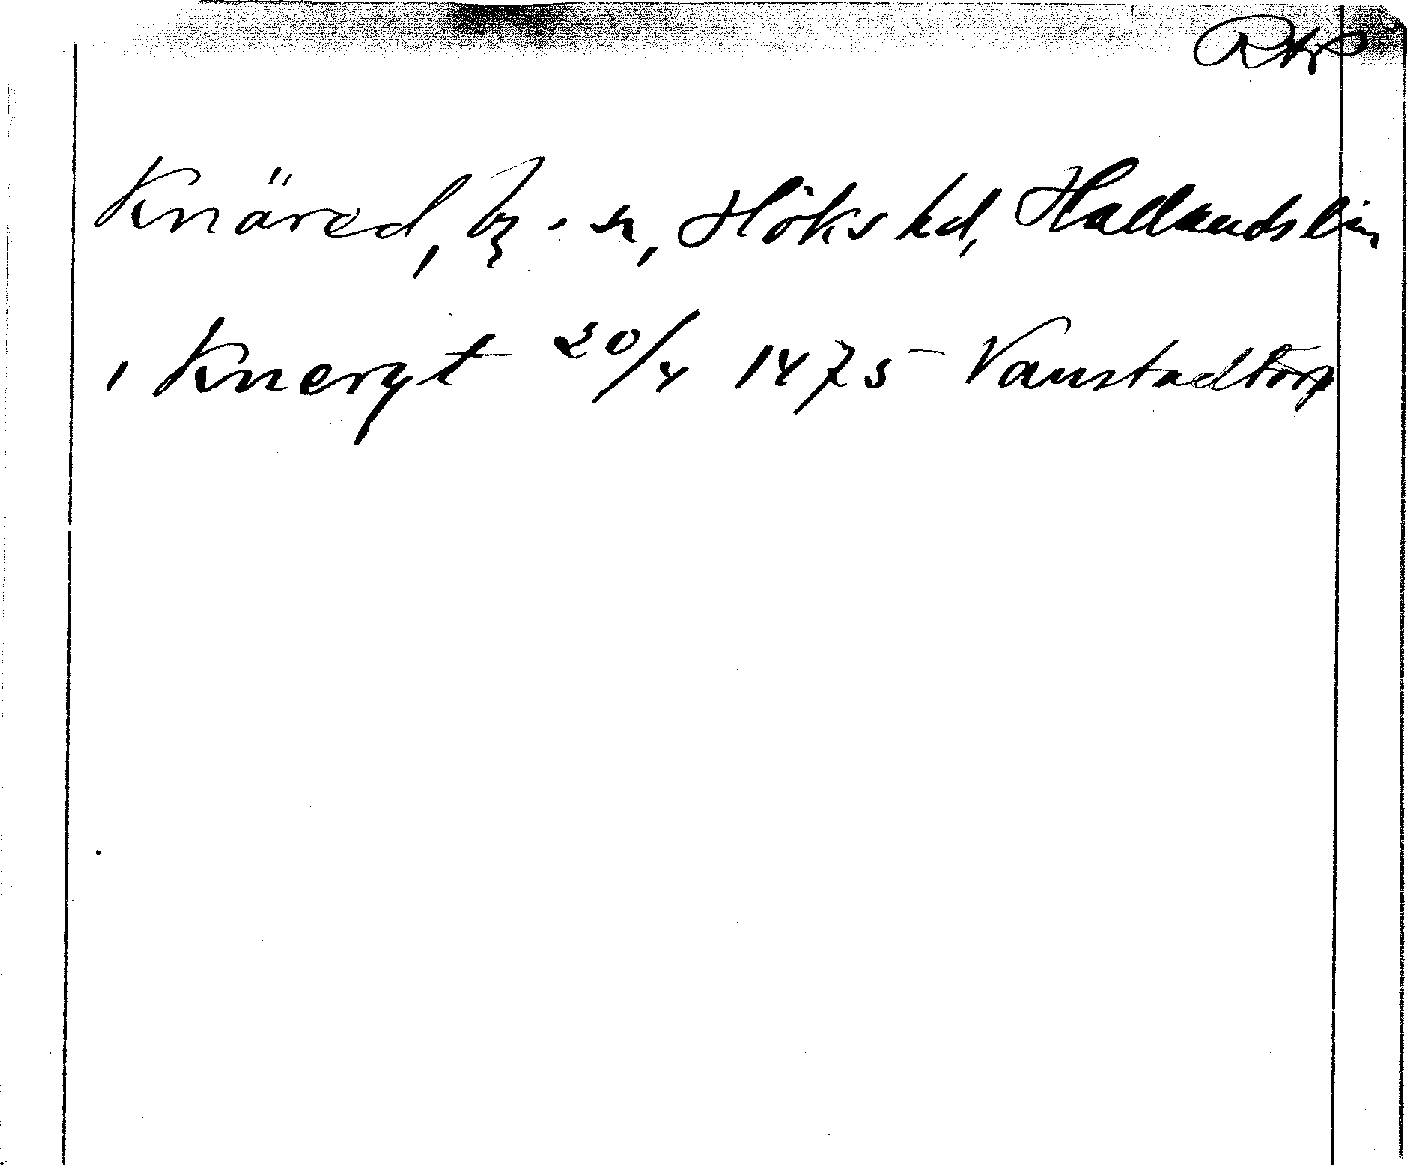 Knäred, by o. sn, Höks hd, Hallands län
i Kneryt 20/4 1475 Vanstadtorp